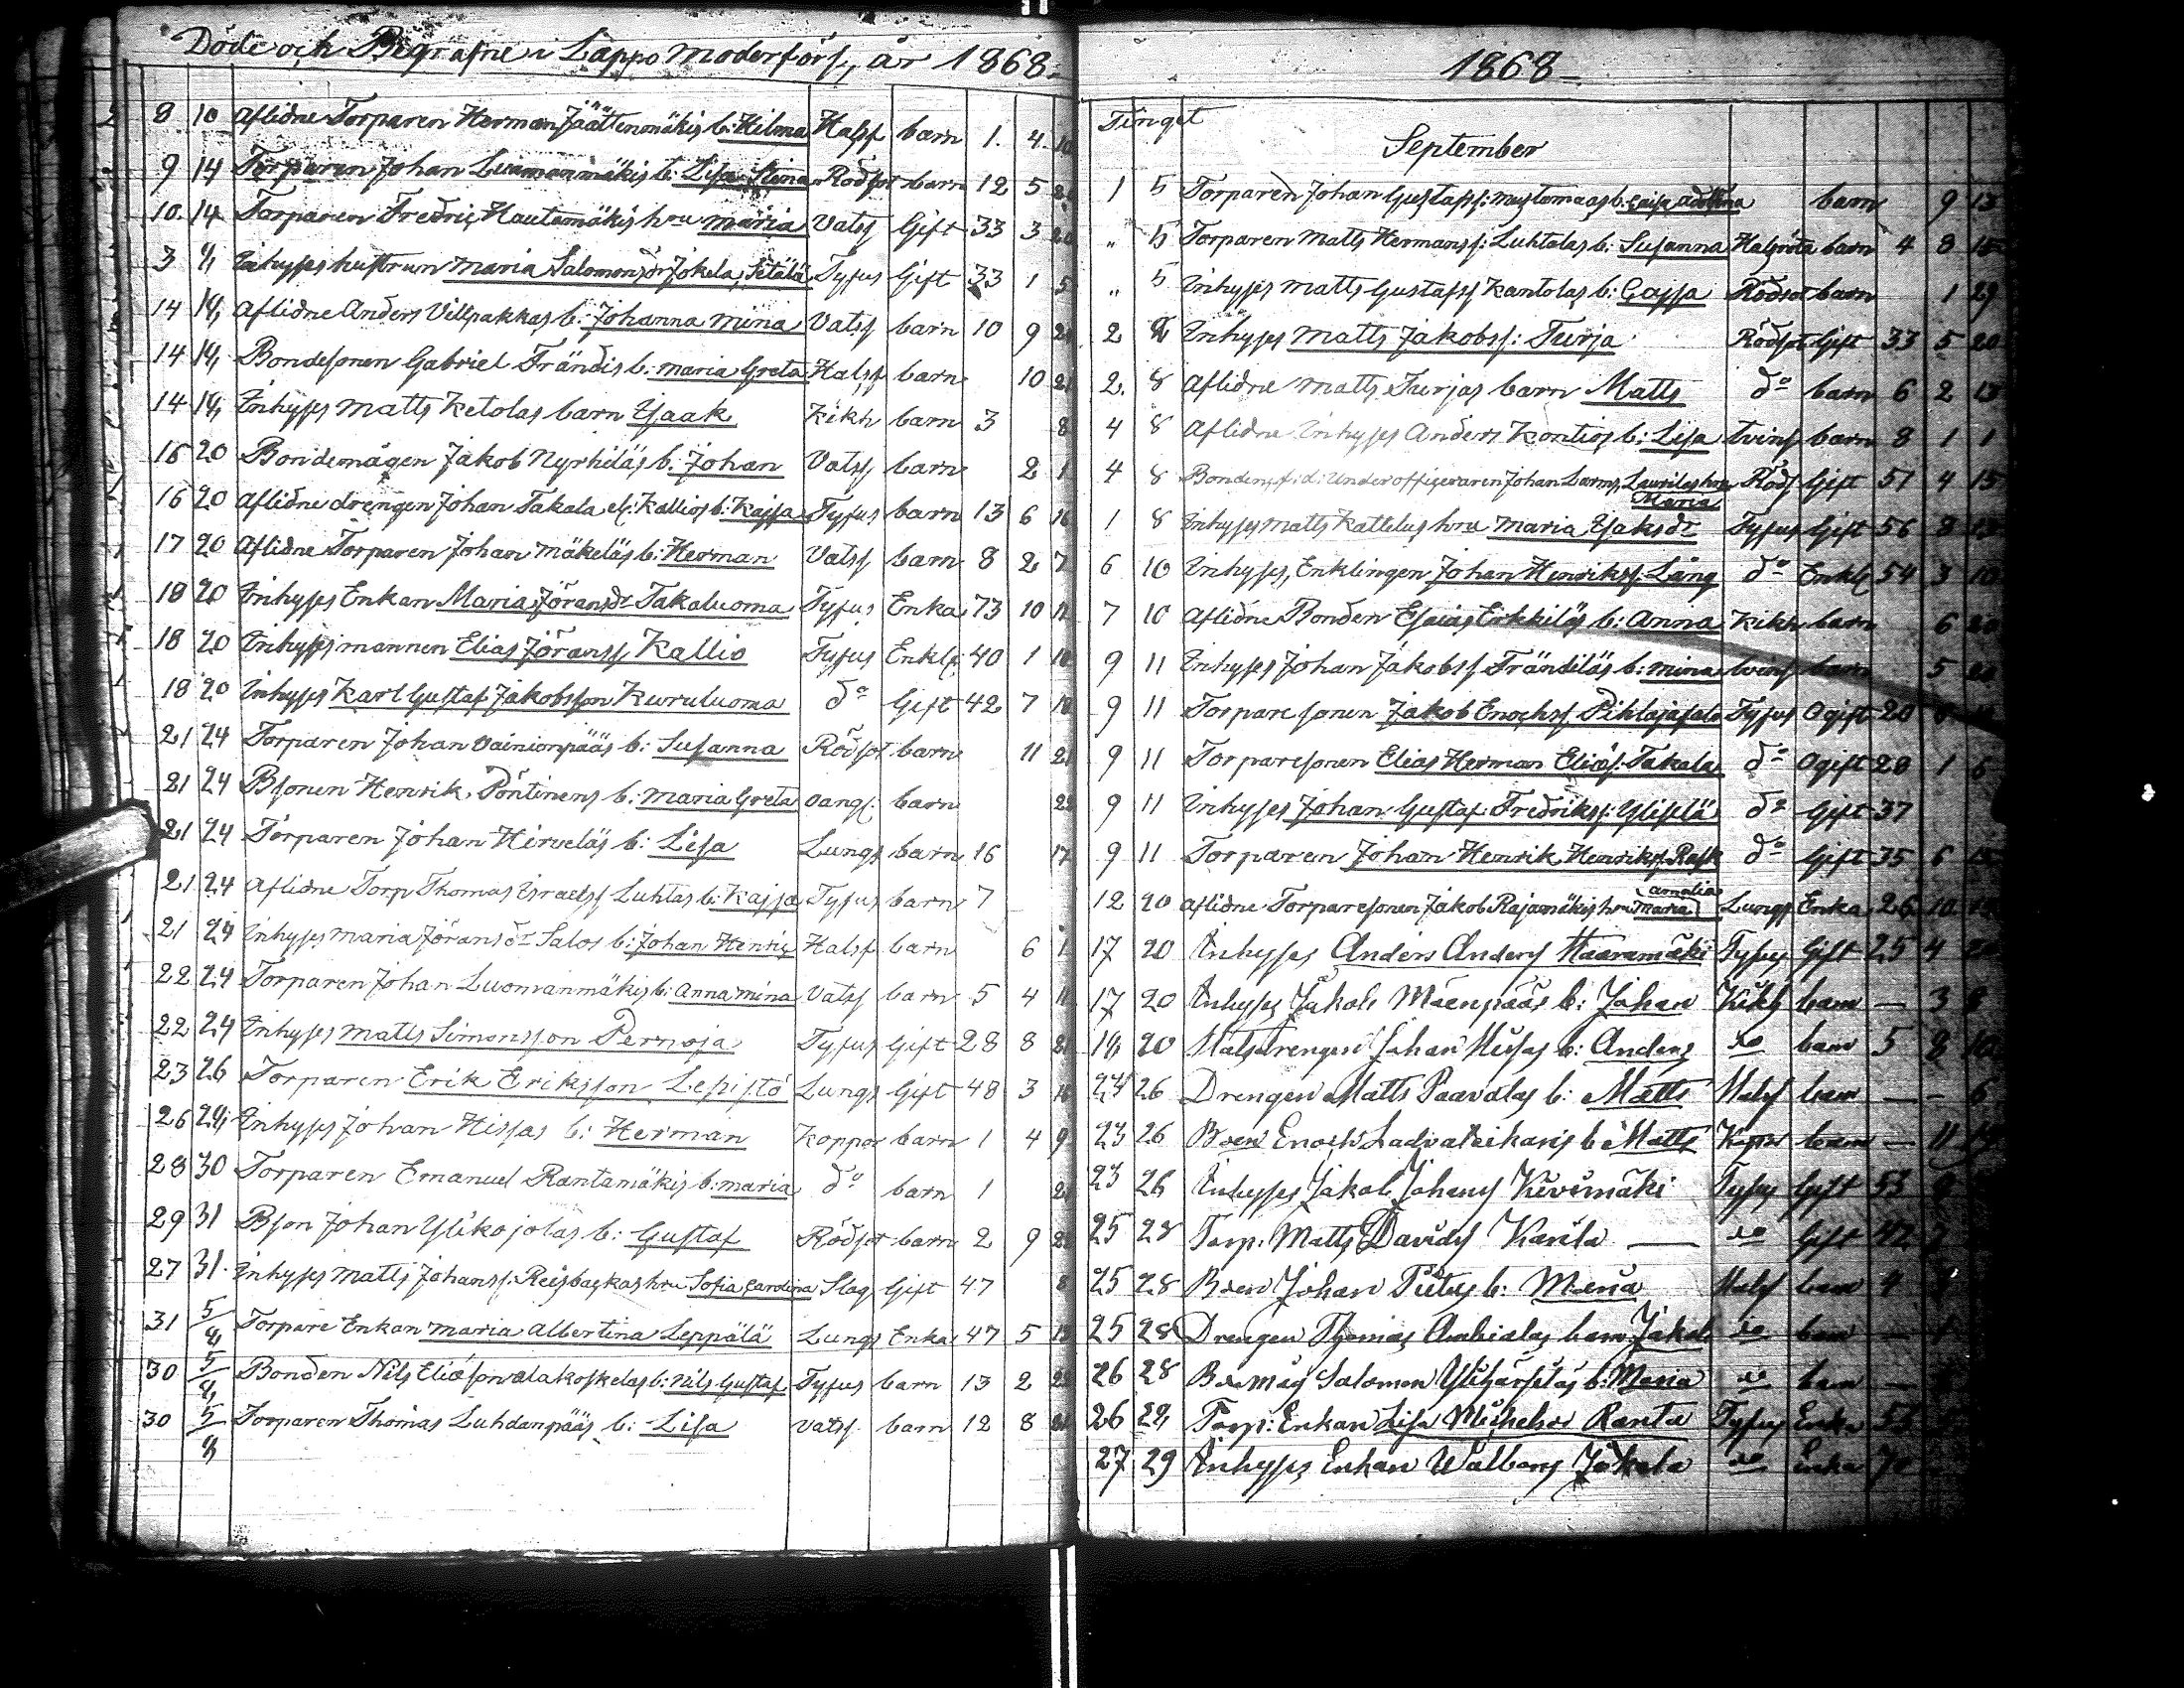 Döde och Begrafne i Lappo Moderförs, år 1868
8 10 Aflidne Torparen Herman Jäättenmäkis b: Hilma Halss barn 1. 4. 10
9 14 Torparen Johan Luomanmäkis b: Lisa Stina Rödsot barn 12 5
10 14 Torparen Fredric Hautamäkis hru Maria Vatss Gift 33 3 20
3 Inhyses hustrun Maria Salomonsdr Jokela, Sitälä Tyfus Gift 33 1 5
14 Aflidne Anders Villpakkas b: Johanna Mina Vatss barn 10 9
14 Bondesonen Gabriel Frändis b: Maria Greta Halss barn 10 21
14 Inhyses Matts Ketolas barn Isaak Kikh barn 3 8
16 20 Bondemågen Jakob Nyrhiläs b: Johan Vatss barn 2 1
16 20 Aflidne drengen Johan Takala el: Kallios b: Kajsa Tyfus barn 13 6 16
17 20 Aflidne Torparen Johan Mäkeläs b: Herman Vatss barn 8 2 7
18 20 Inhyses Enkan Maria Jöransdr Takaluoma Tyfus Enka 73 10 12
18 20 Inhyses mannen Elias Jöranss Kallio Tyfus Enkl: 40 1 10
18 20 Inhyses Karl Gustaf Jakobsson Kuruluoma do Gift 42 7 18
21 24 Torparen Johan Vainionpääs b: Susanna Rödsot barn 11 21
21 24 Bsonen Henrik Pöntinens b: Maria Greta oangf. barn 22
21 24 Torparen Johan Hirveläs b: Lisa Lungs barn 16 17
21 24 Aflidne Torp Thomas Israelss Luhtas b: Kajsa Tyfus barn 7
21 24 Inhyses Maria Jöransdr Salos b: Johan Henric Halss barn 6 1
22 24 Torparen Johan Luomanmäkis b: Anna Mina Vatss barn 5 4 11
22 24 Inhyses Matts Simonsson Pernoja Tyfus Gift 28 8 21
23 26 Torparen Erik Eriksson Lepistö Lungs Gift 48 3 16
26 Inhyses Johan Hissas b: Herman Koppor barn 1 4 9
28 30 Torparen Emanuel Rantamäkis b: Maria do barn 1 21
29 31 Bson Johan Ylikojolas b: Gustaf Rödsot barn 2 9
27 31. Inhyses Matts Johanss: Reisbackas hru Sofia Carolina Slag Gift 47 8
31 5/9 Torpare Enkan Maria Albertina Leppälä Lungs Enka 47 5 13
30 5/9 Bonden Nils Eliæson Alakoskelas b: Nils Gustaf Tyfus barn 13 2 22
30 5/9 Torparen Thomas Luhdanpääs b: Lisa Vatss barn 12 8 21
1868
Tinget
September
1 5 Torparen Johan Gustafs: Mustamaas b: Caisa Adolfina barn 9 13
" 5 Torparen Matts Hermans: Luhtalas b: Susanna Halsröta barn 4 8 15
" 5 Inhyses Matts Gustafss Kantolas b: Cajsa Rödsot barn 1 29
2 Inhyses Matts Jakobss: Turja Rödsot Gift 33 5 20
2. 8 Aflidne Matts Turjas barn Matts do barn 6 2 13
4 8 Aflidne Inhyses Anders Kontios b: Lisa tvins barn 8 1 1
4 8 Bonden, f: d: Underofficeraren Johan Larms, Laurilas hru Maria Röds Gift 51 4 15
1 8 Inhyses Matts Kattelus hru Maria Isaksdr Tyfus Gift 56 8 13
6 10 Inhyses, Enklingen Johan Henrikss: Lång do Enkl 54 3 10
7 10 Aflidne Bonden Esaias Erkkiläs b: Anna Kikh barn 6 20
9 11 Inhyses Johan Jakobss Frändiläs b: Mina tvins barn 5
9 11 Torparesonen Jakob Enochss Pihlajasalo Tyfus Ogift 20
9 11 Torparesonen Elias Herman Eliæs: Takala do Ogift 20 1 6
9 11 Inhyses Johan Gustaf Fredrikss: Yliselä do Gift 37
9 11 Torparen Johan Henrik Henrikss Rask do Gift 35 6 15
12 20 Aflidne Torparesonen Jakob Rajamäkis hru Maria Amalia Lungs Enka 26 10
17 20 Inhyses Anders Anders Haaramäki Tyfus Gift 25 4
17 20 Inhyses Jakob Mäenpääs b: Johan Kikh barn — 3 8
18 20 drengen Johan Hissas b: Anders do barn 5 8 10
23 26 Drengen Matts Paavolas b: Matts Halss barn — — 6
23 26 Enoch b: Matts Koppor barn — 11
23 26 Inhyses Jakob Johans Kivimäki Tyfus Gift 53 9
25 28 Torp: Matts Davids Karila — do Gift 42 7
25 28 Johan b: Maria Halss barn 4
25 28 Drengen Thomas barn Jakob do barn —
26 28 måg Salomon Ylihärsiläs b: Maria do barn —
26 29 Torp: Enkan Lisa Michelsdr Ranta Tyfus Enka
27 29 Inhyses Enkan Walborg Jokela do Enka 70